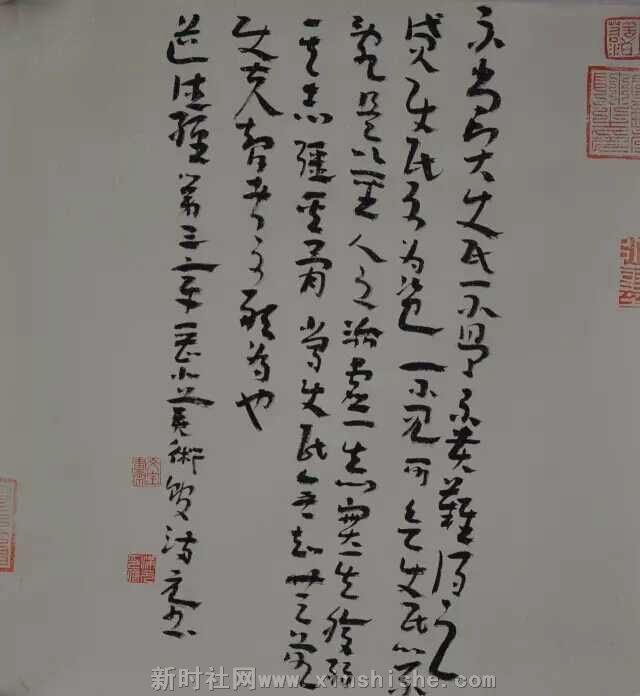 不尚賢使民不爭不貴難得之
貨使民不為盜不見可欲使民心不
亂是以聖人之治虛其心實其腹弱
其志彊其骨常使民無知無欲
使夫智者不敢為也
道德經第三章美術
新时社网 www.xinshishe.com